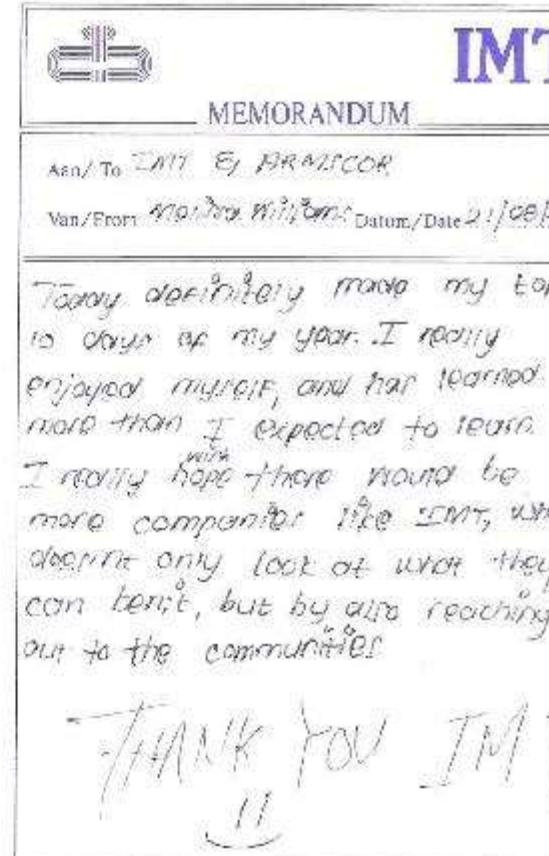 IMT
MEMORANDUM
Aan/To IMT & ARMSCOR
Van/From Datum/Date 21/08/
Today definitely made my top
10 days of my year. I really
enjoyed myself, and has learned
more than I expected to learn
I really hope there would be
wish
more companies like IMT, who
doesn't only look at what they
can benit, but by also reaching
out to the communities
THANK YOU IM